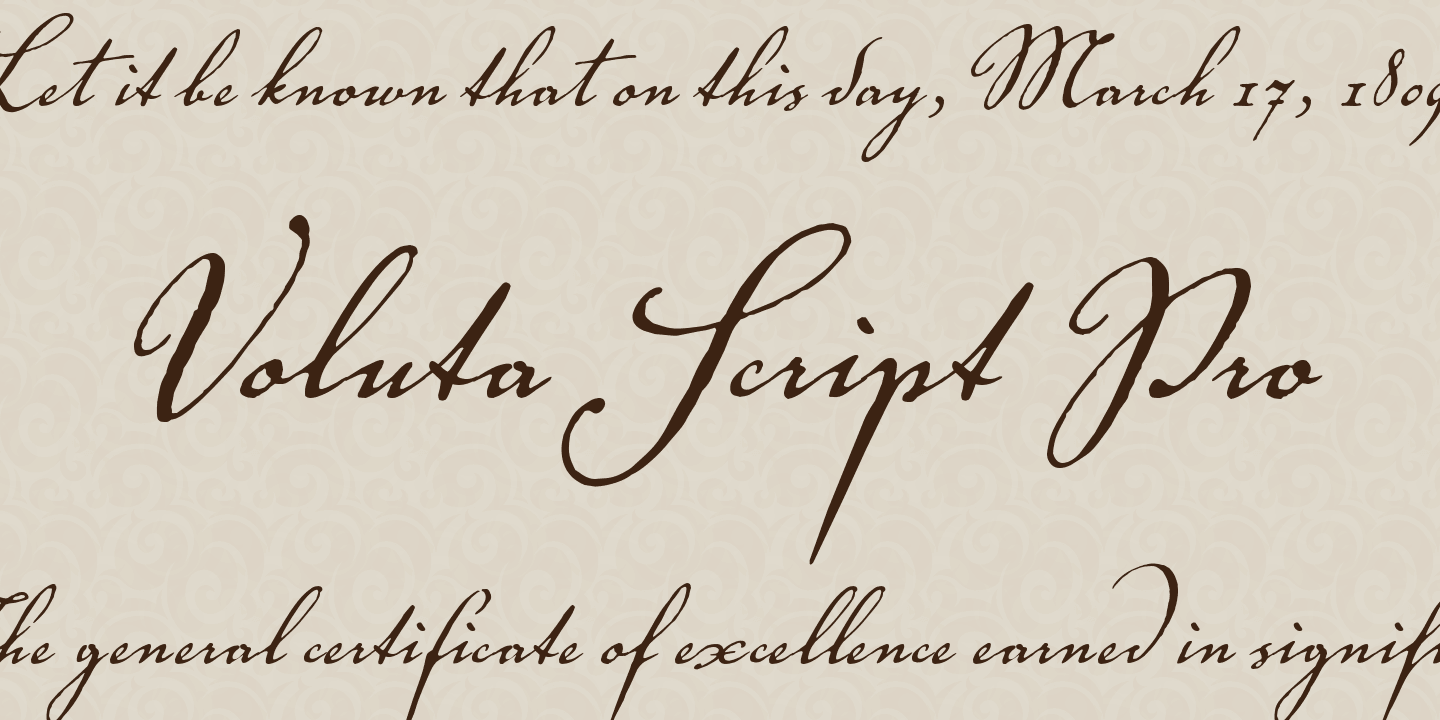 Let it be known that on this day, March 17, 1809
Voluta Script Pro
The general certificate of excellence earned in